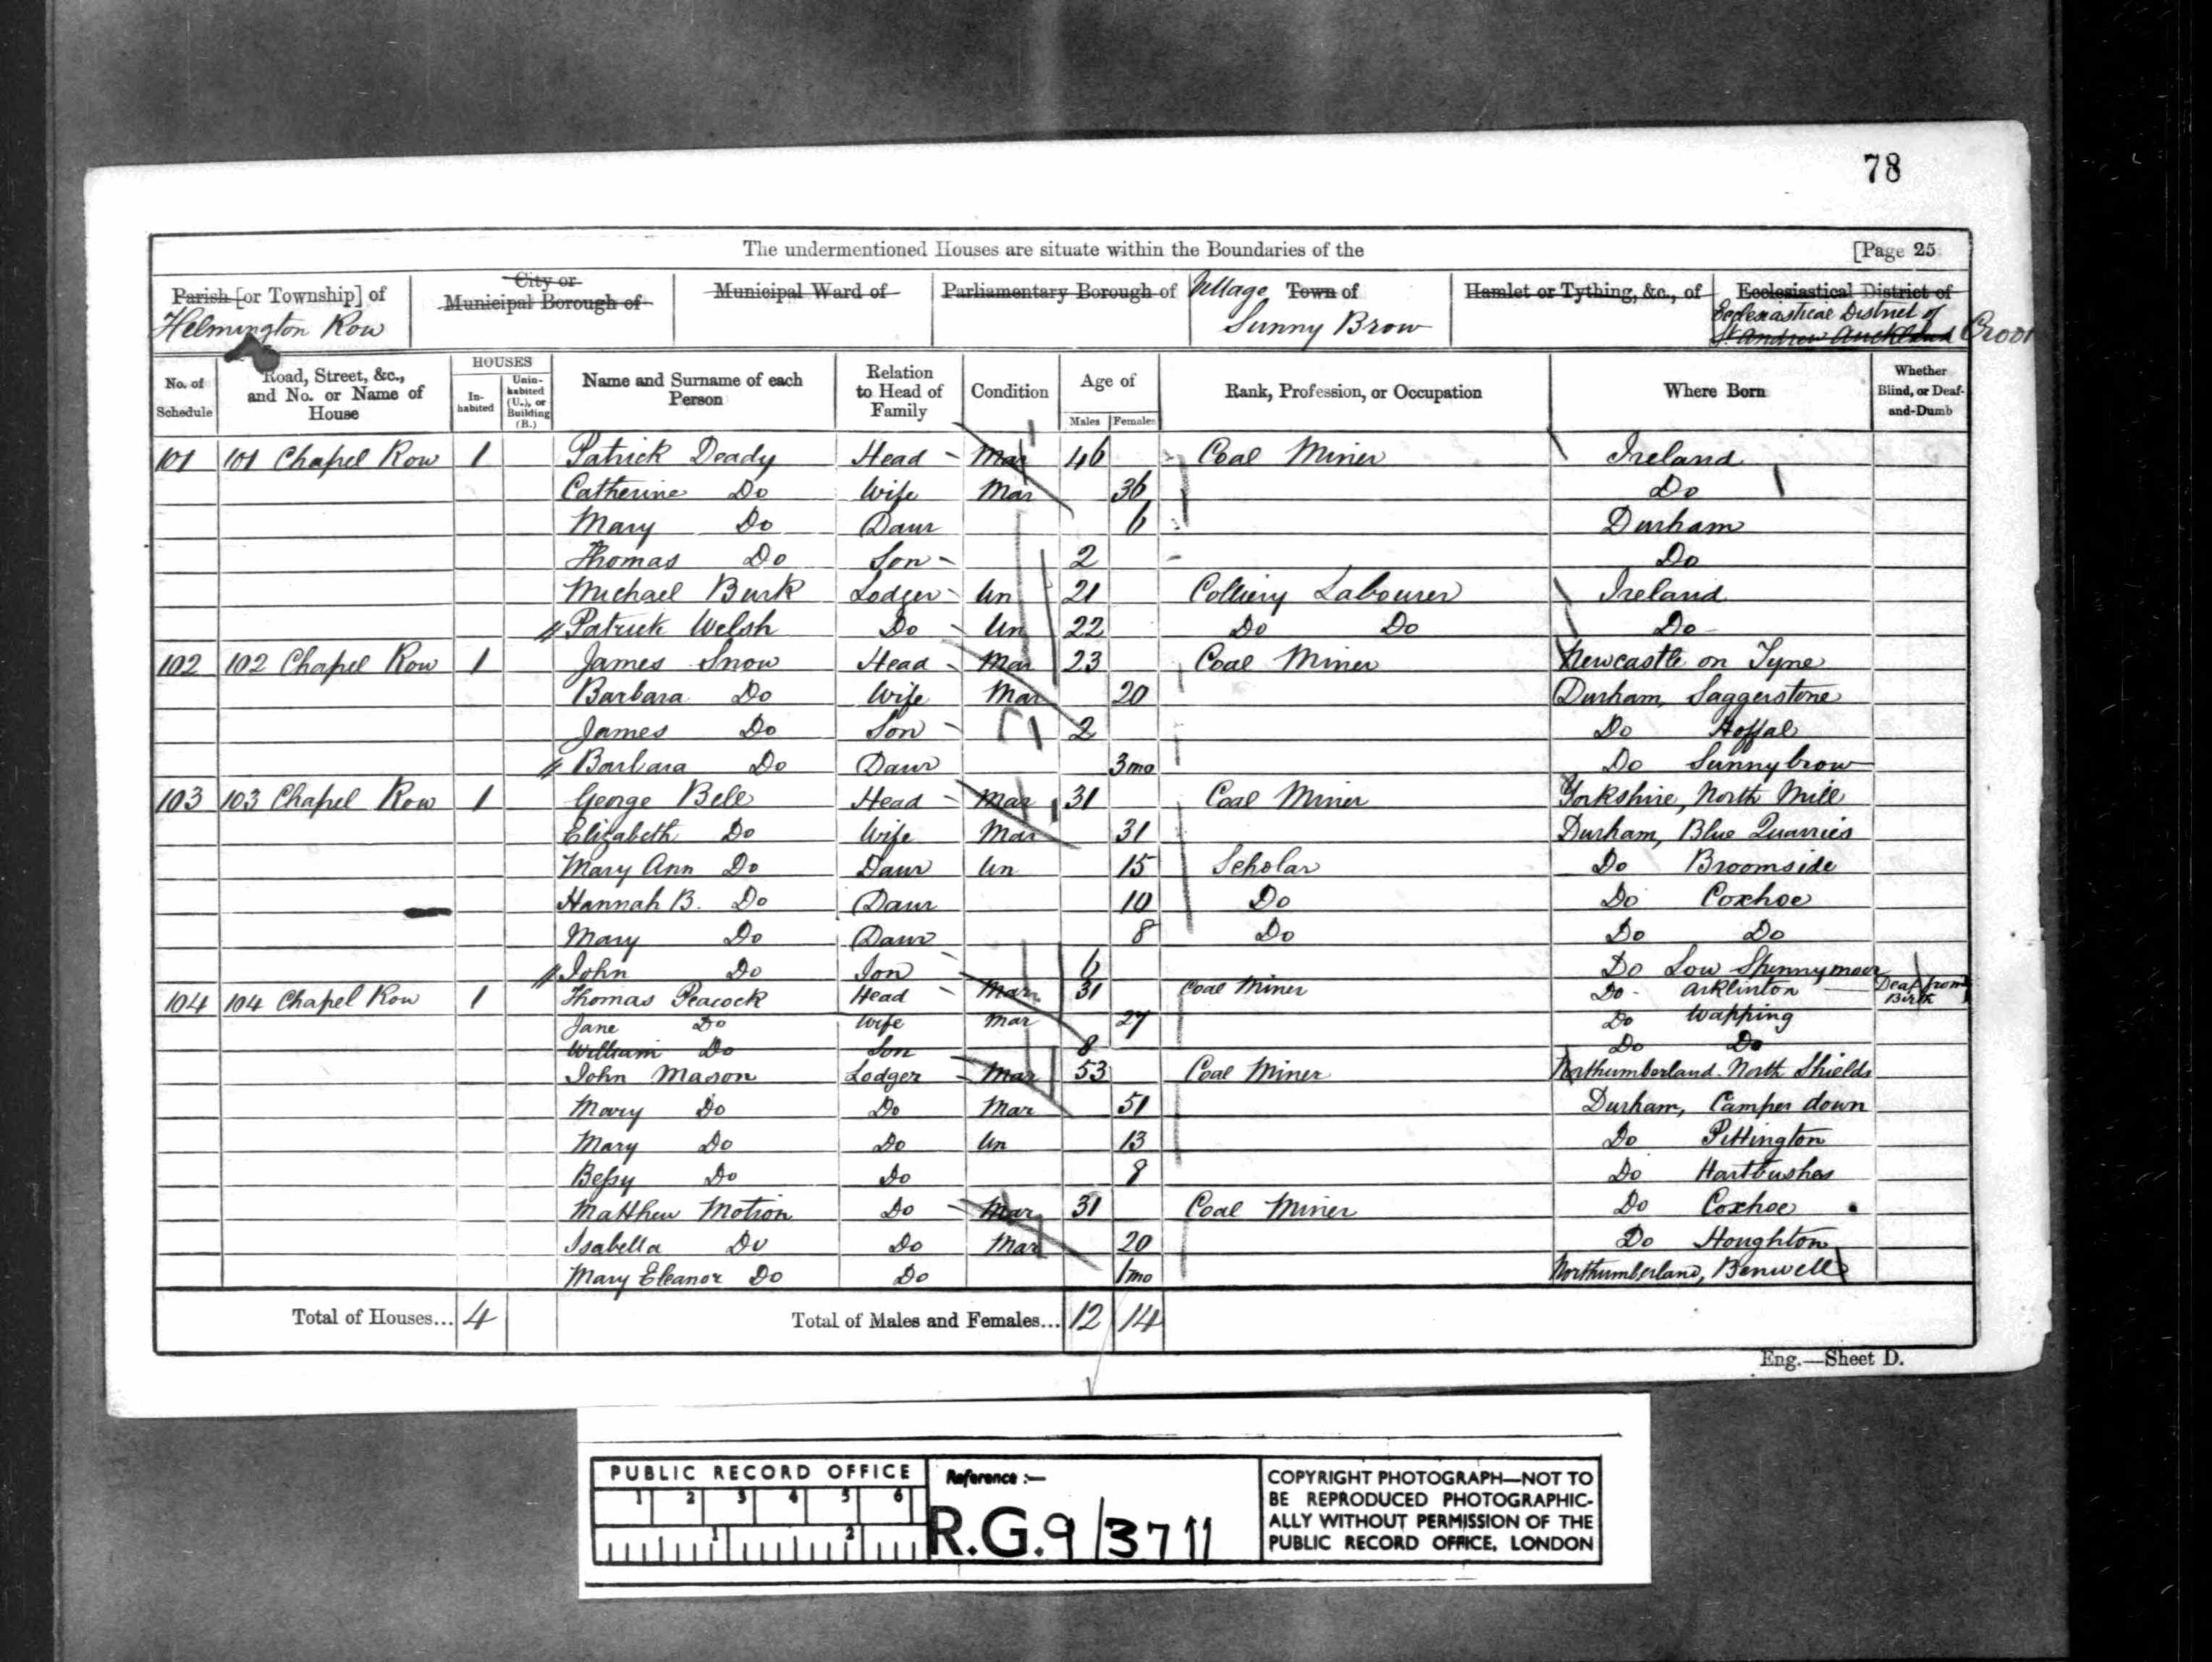 78
The undermentioned Houses are situate within the Boundaries of the [Page 25
Parish [or Township] of City or Municipal Borough of Municipal Ward of Parliamentary Borough of Village Town of Hamlet or Tything, &c., of Ecclesiastical District of
Helmington Row Sunny Brow Ecclesiastical District of St Andrew Auckland Crook
No. of Schedule Road, Street, &c., and No. or Name of House HOUSES In-habited Unin-habited (U.), or Building (B.) Name and Surname of each Person Relation to Head of Family Condition Age of Males Females Rank, Profession, or Occupation Where Born Whether Blind, or Deaf-and-Dumb
101 101 Chapel Row 1 Patrick Deady Head Mar 46 Coal Miner Ireland
Catherine Do Wife Mar 36 Do
Mary Do Daur 6 Durham
Thomas Do Son 2 Do
Michael Burk Lodger Un 21 Colliery Labourer Ireland
Patrick Welsh Do Un 22 Do Do Do
102 102 Chapel Row 1 James Snow Head Mar 23 Coal Miner Newcastle on Tyne
Barbara Do Wife Mar 20 Durham, Saggerstone
James Do Son 2 Do Hoffal
Barbara Do Daur 3mo Do Sunnybrow
103 103 Chapel Row 1 George Bell Head Mar 31 Coal Miner Yorkshire, North Mill
Elizabeth Do Wife Mar 31 Durham, Blue Quarries
Mary Ann Do Daur Un 15 Scholar Do Broomside
Hannah B. Do Daur 10 Do Do Coxhoe
Mary Do Daur 8 Do Do Do
John Do Son 6 Do Low Spennymoor
104 104 Chapel Row 1 Thomas Peacock Head Mar 31 Coal Miner Do Arklinton Deaf from Birth
Jane Do Wife Mar 27 Do Wapping
William Do Son 8 Do Do
John Mason Lodger Mar 53 Coal Miner Northumberland. North Shields
Mary Do Do Mar 51 Durham, Camper down
Mary Do Do Un 13 Do Pittington
Bessy Do Do 8 Do Hartbushes
Matthew Motion Do Mar 31 Coal Miner Do Coxhoe
Isabella Do Do Mar 20 Do Houghton
Mary Eleanor Do Do 1mo Northumberland, Benwell
Total of Houses... 4 Total of Males and Females... 12 14
Eng.—Sheet D.
PUBLIC RECORD OFFICE
1 2 3 4 5 6
1 2
Reference :—
R.G.9/3711
COPYRIGHT PHOTOGRAPH—NOT TO
BE REPRODUCED PHOTOGRAPHIC-
ALLY WITHOUT PERMISSION OF THE
PUBLIC RECORD OFFICE, LONDON